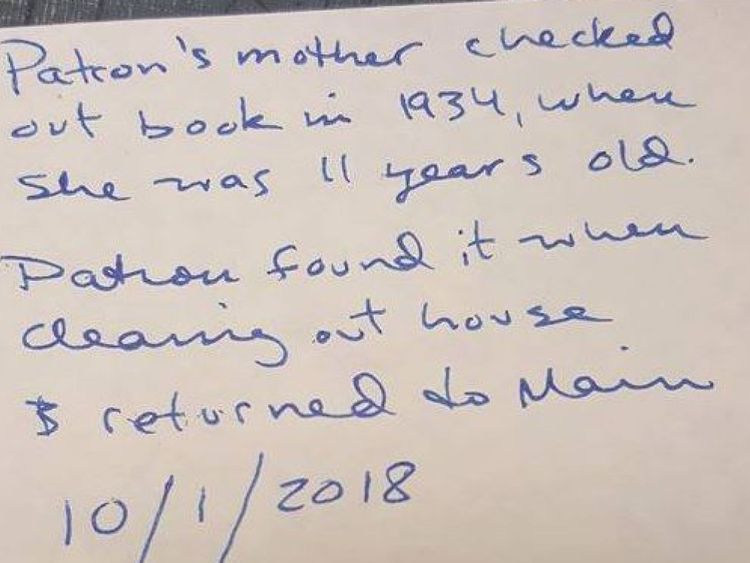 Patron's mother checked
out book in 1934, when
she was 11 years old.
Patron found it when
cleaning out house
& returned to Main
10/1/2018